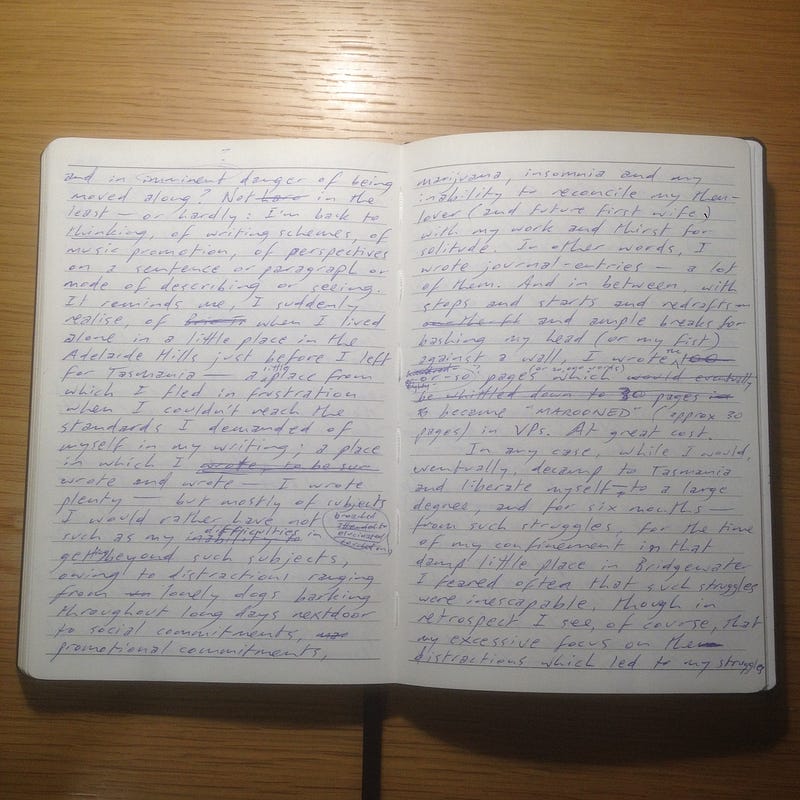 and in imminent danger of being
moved along? Not hard in the
least — or hardly: I'm back to
thinking, of writing schemes, of
music promotion, of perspectives
on a sentence or paragraph or
mode of describing or seeing.
It reminds me, I suddenly
realise, of when I lived
alone in a little place in the
Adelaide Hills just before I left
for Tasmania — a little place from
which I fled in frustration
when I couldn't reach the
standards I demanded of
myself in my writing; a place
in which I wrote, to be sure
wrote and wrote — I wrote
plenty — but mostly of subjects
I would rather have not broached
attended to
elucidated
such as my inability to difficulties in
getting beyond such subjects,
owing to distractions ranging
from lonely dogs barking
throughout long days nextdoor
to social commitments,
promotional commitments,
marijuana, insomnia and my
inability to reconcile my then-
lover (and future first wife)
with my work and thirst for
solitude. In other words, I
wrote journal-entries — a lot
of them. And in between, with
stops and starts and redrafts
and ample breaks for
bashing my head (or my fist)
against a wall, I wrote the 100
or-so pages (or 20,000 words) which would eventually
be whittled down to 30 pages in
became "MAROONED" (approx 30
pages) in VPs. At great cost.
In any case, while I would,
eventually, decamp to Tasmania
and liberate myself — to a large
degree, and for six months —
from such struggles, for the time
of my confinement in that
damp little place in Bridgewater
I feared often that such struggles
were inescapable, though in
retrospect I see, of course, that
my excessive focus on the
distractions which led to my struggles